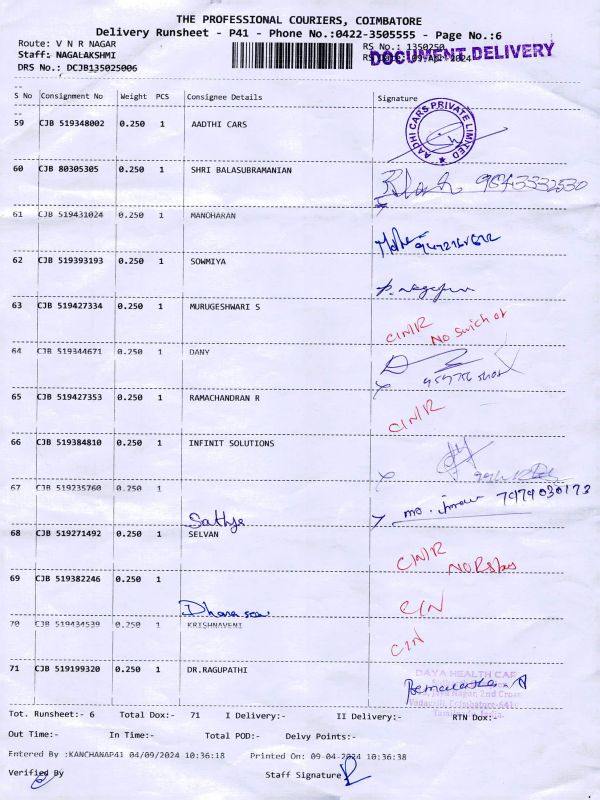 THE PROFESSIONAL COURIERS, COIMBATORE
Delivery Runsheet - P41 - Phone No.:0422-3505555 - Page No.:6
Route: V N R NAGAR RS No.: 1350250
Staff: NAGALAKSHMI RS Date: 09-Apr-2024
DOCUMENT DELIVERY
DRS No.: DCJB135025006
S No Consignment No Weight PCS Consignee Details Signature
59 CJB 519348002 0.250 1 AADTHI CARS
AADHI CARS PRIVATE LIMITED
60 CJB 80305305 0.250 1 SHRI BALASUBRAMANIAN
61 CJB 519431024 0.250 1 MANOHARAN
62 CJB 519393193 0.250 1 SOWMIYA
63 CJB 519427334 0.250 1 MURUGESHWARI S
CIN/R No Swich of
64 CJB 519344671 0.250 1 DANY
65 CJB 519427353 0.250 1 RAMACHANDRAN R
CIN/R
66 CJB 519384810 0.250 1 INFINIT SOLUTIONS
67 CJB 519235760 0.250 1
Sathya 7979030173
68 CJB 519271492 0.250 1 SELVAN
CIN/R
69 CJB 519382246 0.250 1
CIN
70 CJB 519434539 0.250 1 KRISHNAVENI
CIN
71 CJB 519199320 0.250 1 DR.RAGUPATHI
DAYA HEALTH CAR
Nagar, 2nd Cross
Vadavalli, Coimbatore-641
Tamilnadu, India.
Tot. Runsheet:- 6 Total Dox:- 71 I Delivery:- II Delivery:- RTN Dox:-
Out Time:- In Time:- Total POD:- Delvy Points:-
Entered By :KANCHANAP41 04/09/2024 10:36:18 Printed On: 09-04-2024 10:36:38
Verified By Staff Signature